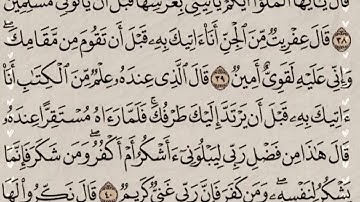 قَالَ يَٰٓأَيُّهَا ٱلْمَلَؤُا۟ أَيُّكُمْ يَأْتِينِى بِعَرْشِهَا قَبْلَ أَن يَأْتُونِى مُسْلِمِينَ
٣٨ قَالَ عِفْرِيتٌ مِّنَ ٱلْجِنِّ أَنَا۠ ءَاتِيكَ بِهِۦ قَبْلَ أَن تَقُومَ مِن مَّقَامِكَ ۖ
وَإِنِّى عَلَيْهِ لَقَوِىٌّ أَمِينٌ ٣٩ قَالَ ٱلَّذِى عِندَهُۥ عِلْمٌ مِّنَ ٱلْكِتَٰبِ أَنَا۠
ءَاتِيكَ بِهِۦ قَبْلَ أَن يَرْتَدَّ إِلَيْكَ طَرْفُكَ ۚ فَلَمَّا رَءَاهُ مُسْتَقِرًّا عِندَهُۥ
قَالَ هَٰذَا مِن فَضْلِ رَبِّى لِيَبْلُوَنِىٓ ءَأَشْكُرُ أَمْ أَكْفُرُ ۖ وَمَن شَكَرَ فَإِنَّمَا
يَشْكُرُ لِنَفْسِهِۦ ۖ وَمَن كَفَرَ فَإِنَّ رَبِّى غَنِىٌّ كَرِيمٌ ٤٠ قَالَ نَكِّرُوا۟ لَهَا